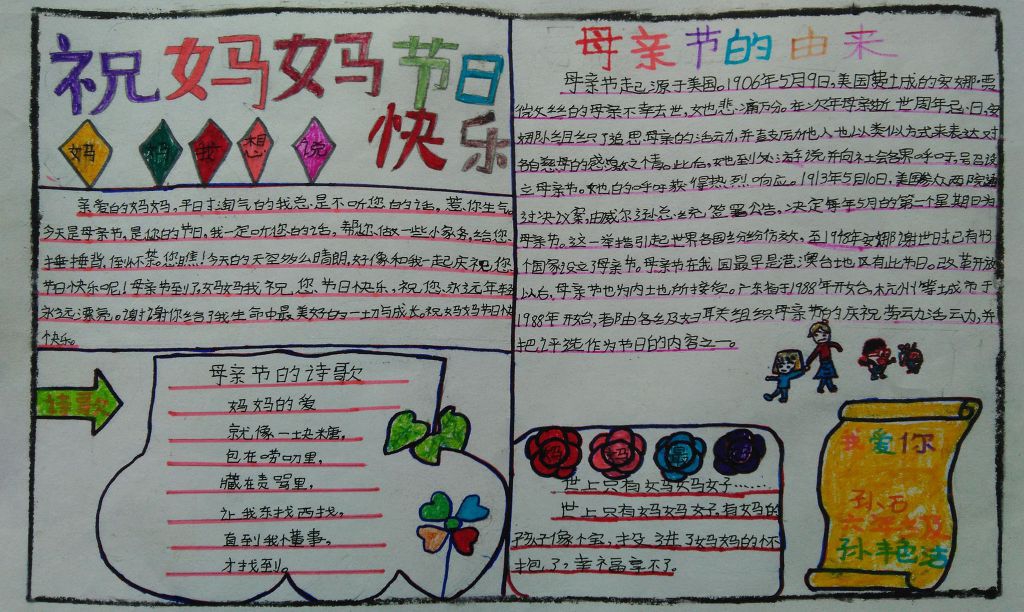 祝妈妈节日
快乐
妈 妈 我 想 说
亲爱的妈妈,平日才淘气的我总是不听您的话,惹你生气。
今天是母亲节,是你的节日,我一定听您的话,帮您做一些小家务,给您
捶捶背,倒杯茶。您瞧!今天的天空多么晴朗,好像和我一起庆祝您
节日快乐呢!母亲节到了,妈妈我祝您节日快乐、祝您永远年轻
永远漂亮。谢谢你给了我生命中最美好的一切与成长。祝妈妈节日快
快乐。
诗歌
母亲节的诗歌
妈妈的爱
就像一块糖,
包在唠叨里,
藏在责骂里,
让我东找西找,
直到我懂事,
才找到。
母亲节的由来
母亲节走已源于美国。1906年5月9日,美国费土成的安娜·贾
薇丝的母亲不幸去世,女也悲痛万分。在次年母亲逝世周年忌日,安
娜阝人组织了追思母亲的活动,并直支厉力他人也以类似方式来表达对
各自慈母的感激之情。此后,女也到处游说并向社会各界呼吁,号召设
立母亲节。她的呼吁获得热烈响应。1913年5月10日,美国参众两院通
过决议案,由威尔孙总统签署公告,决定每年5月的第一个星期日为
母亲节。这一举措引起世界各国纷纷仿效,至1948年安娜谢世时,已有43
个国家设立了母亲节。母亲节在我国最早是港澳台地区有此节日。改革开放
以后,母亲节也为内土也所接受。广东省于1988年开始,杭州等城市于
1988年开始,各阝由各级妇联组织母亲节的庆祝活动,并
把评选作为节日的内容之一。
妈 妈 最
世上只有妈妈好……
世上只有妈妈好,有妈的
孩子像个宝,投进了妈妈的怀
抱了,幸福享不了。
我爱你